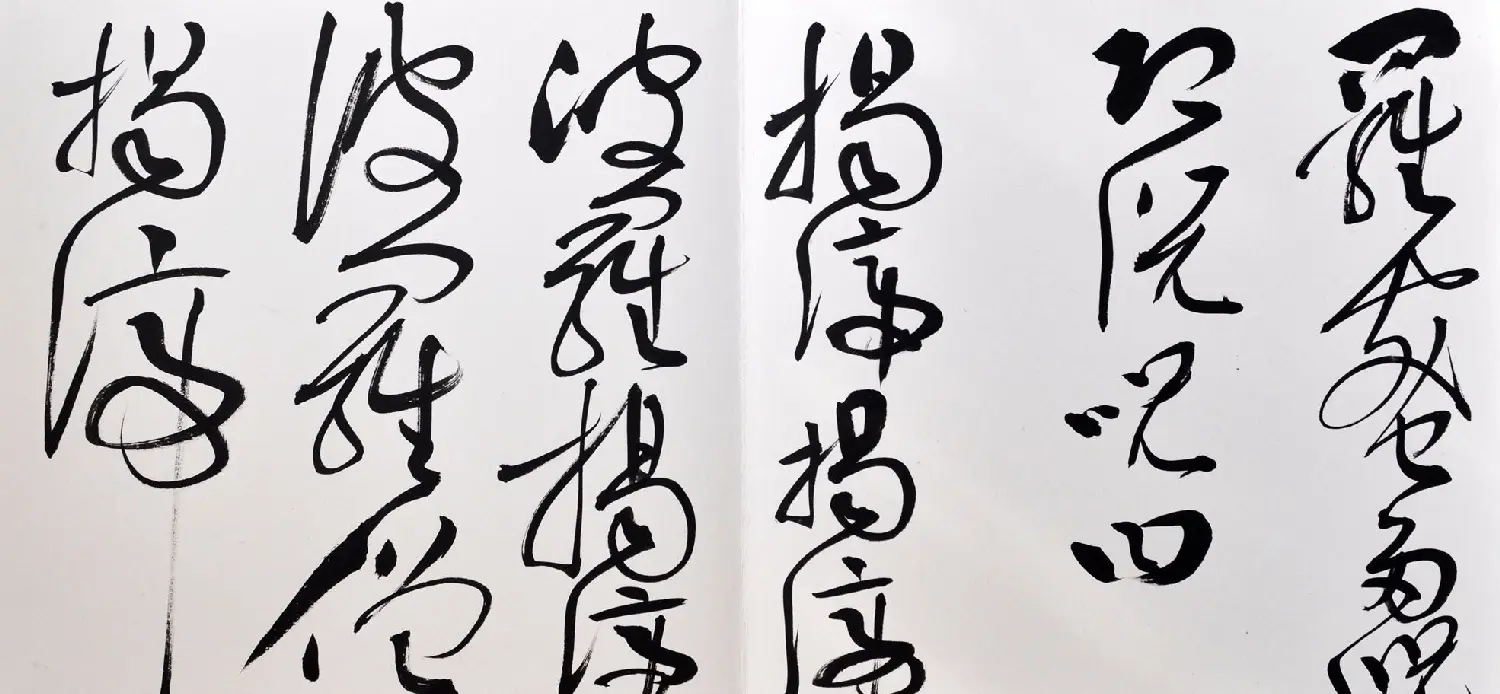 羅蜜多咒
即說咒曰
揭諦揭諦
波羅揭諦
波羅僧
揭諦